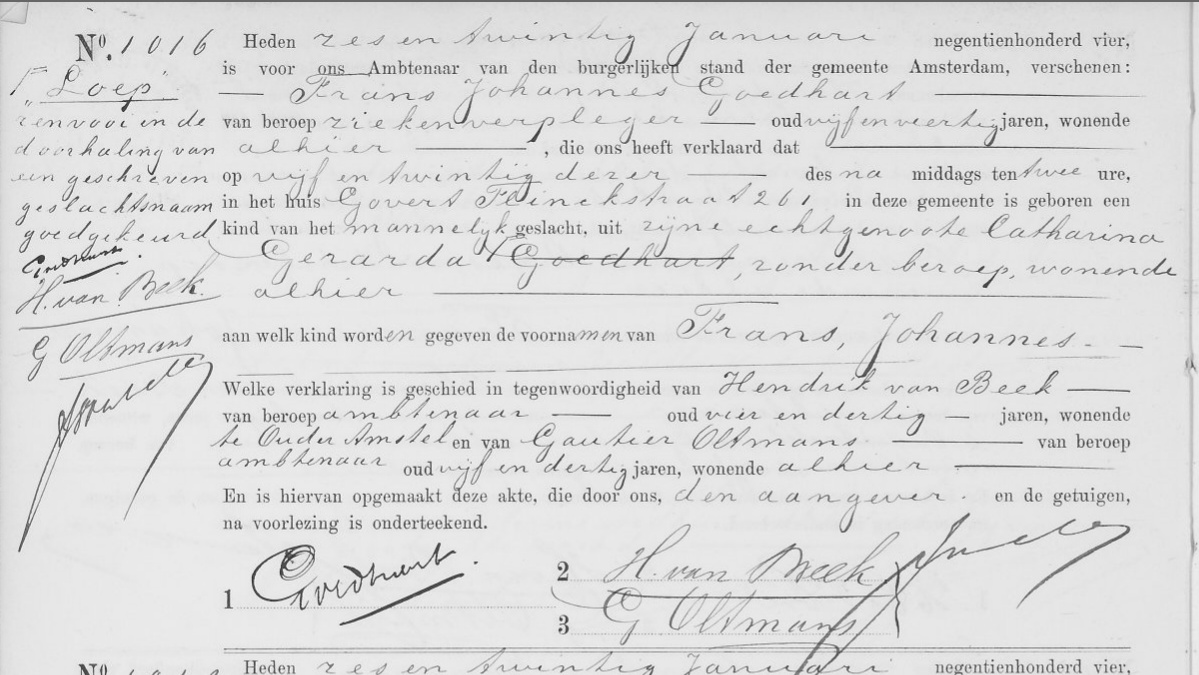 No. 1016
Heden zes en twintig Januari negentienhonderd vier,
is voor ons Ambtenaar van den burgerlijken stand der gemeente Amsterdam, verschenen:
Frans Johannes Goedhart
van beroep ziekenverpleger oud vijf en veertig jaren, wonende
alhier, die ons heeft verklaard dat
op vijf en twintig dezer des na middags ten twee ure,
in het huis Govert Flinckstraat 261 in deze gemeente is geboren een
kind van het mannelijk geslacht, uit zijne echtgenoote Catharina
Gerarda Goedhart, zonder beroep, wonende
alhier
aan welk kind worden gegeven de voornamen van Frans, Johannes.
Welke verklaring is geschied in tegenwoordigheid van Hendrik van Beek
van beroep ambtenaar oud vier en dertig jaren, wonende
te Ouder Amstel en van Gautier Oltmans van beroep
ambtenaar oud vijf en dertig jaren, wonende alhier
En is hiervan opgemaakt deze akte, die door ons, den aangever en de getuigen,
na voorlezing is onderteekend.
1 Goedhart.
2 H. van Beek
3 G Oltmans
„Loep”
renvooi in de
doorhaling van
een geschreven
geslachtsnaam
goedgekeurd
Goedhart.
H. van Beek.
G Oltmans
No.
Heden zes en twintig Januari negentienhonderd vier,